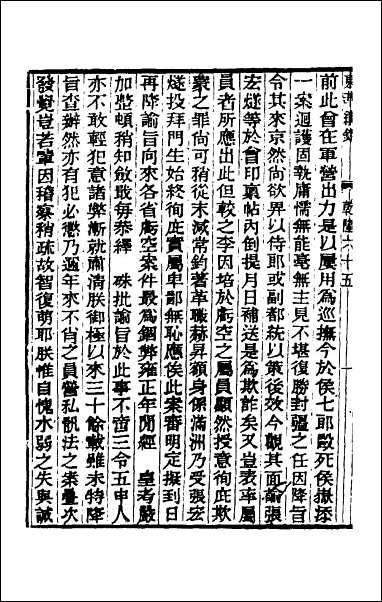 東華續錄　乾隆六十五　一
前此曾在軍營出力是以屢用為巡撫今於侯七郎毆死侯嶽添
一案迴護固執庸懦無能毫無主見不堪復勝封疆之任因降旨
令其來京然尚欲畀以侍郎或副都統以策後效今觀其面諭張
宏燧等於會印稟帖內倒提月日補送是為欺詐矣又豈表率屬
員者所應出此但較之李因培於虧空之屬員顯然授意徇庇欺
蒙之罪尚可稍從末減常鈞著革職赫昇額身係滿洲乃受張宏
燧投拜門生始終徇庇實屬卑鄙無恥應俟此案審明定擬到日
再降諭旨向來各省虧空案件最為錮弊雍正年間經　皇考嚴
加整頓稍知斂戢每恭繹　硃批諭旨於此事不啻三令五申人
亦不敢輕犯意諸弊漸就肅清朕御極以來三十餘載雖未特降
旨查辦然亦有犯必懲乃邇年來不肖之員營私骫法之案疊次
發覺豈若輩因稽察稍疏故智復萌耶朕惟自愧水弱之失與誠